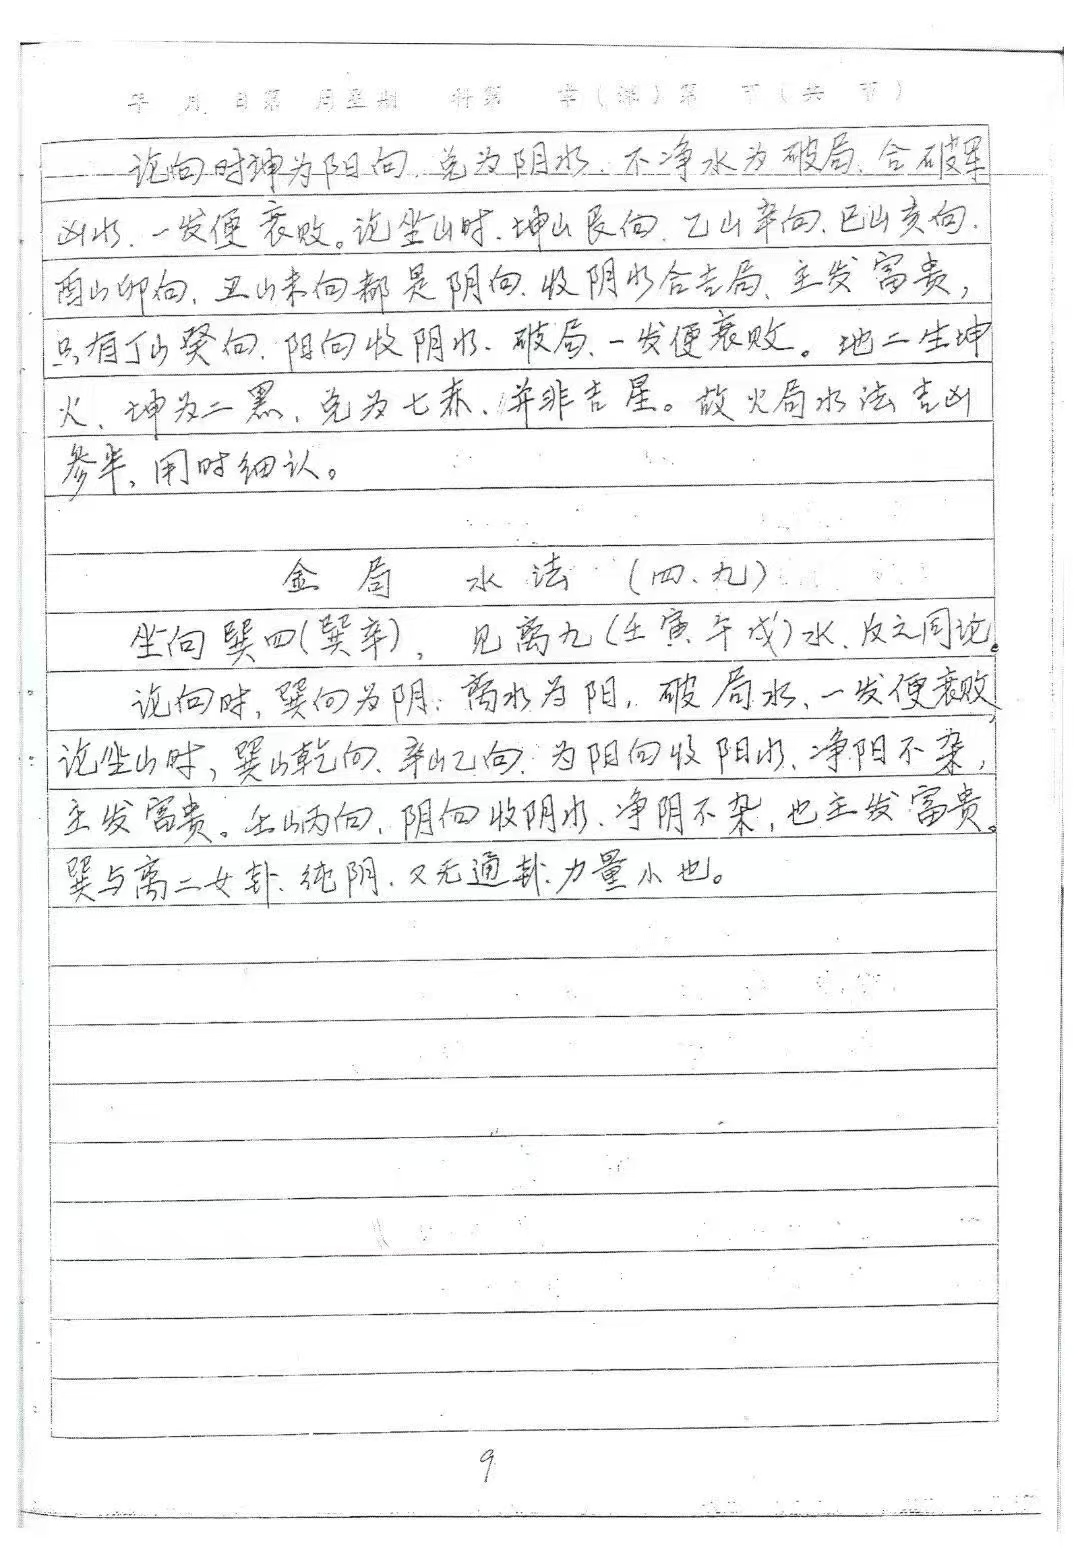 年 月 日第 周星期 科第 章（课）第 节（共 节）
论向时坤为阳向、兑为阴水、不净水为破局、合破军
凶水、一发便衰败。论坐山时、坤山艮向、乙山辛向、巳山亥向、
酉山卯向、丑山未向都是阴向、收阴水合吉局、主发富贵，
只有丁山癸向、阳向收阴水、破局、一发便衰败。地二生坤
火、坤为二黑、兑为七赤、并非吉星。故火局水法吉凶
参半，用时细认。
金局 水法（四、九）
坐向巽四（巽辛），见离九（壬寅午戌）水、反之同论。
论向时，巽向为阴；离水为阳，破局水，一发便衰败，
论坐山时，巽山乾向、辛山乙向、为阳向收阳水、净阳不杂，
主发富贵。壬山丙向，阴向收阴水、净阴不杂，也主发富贵。
巽与离二女卦、纯阴、又无通卦、力量小也。
9